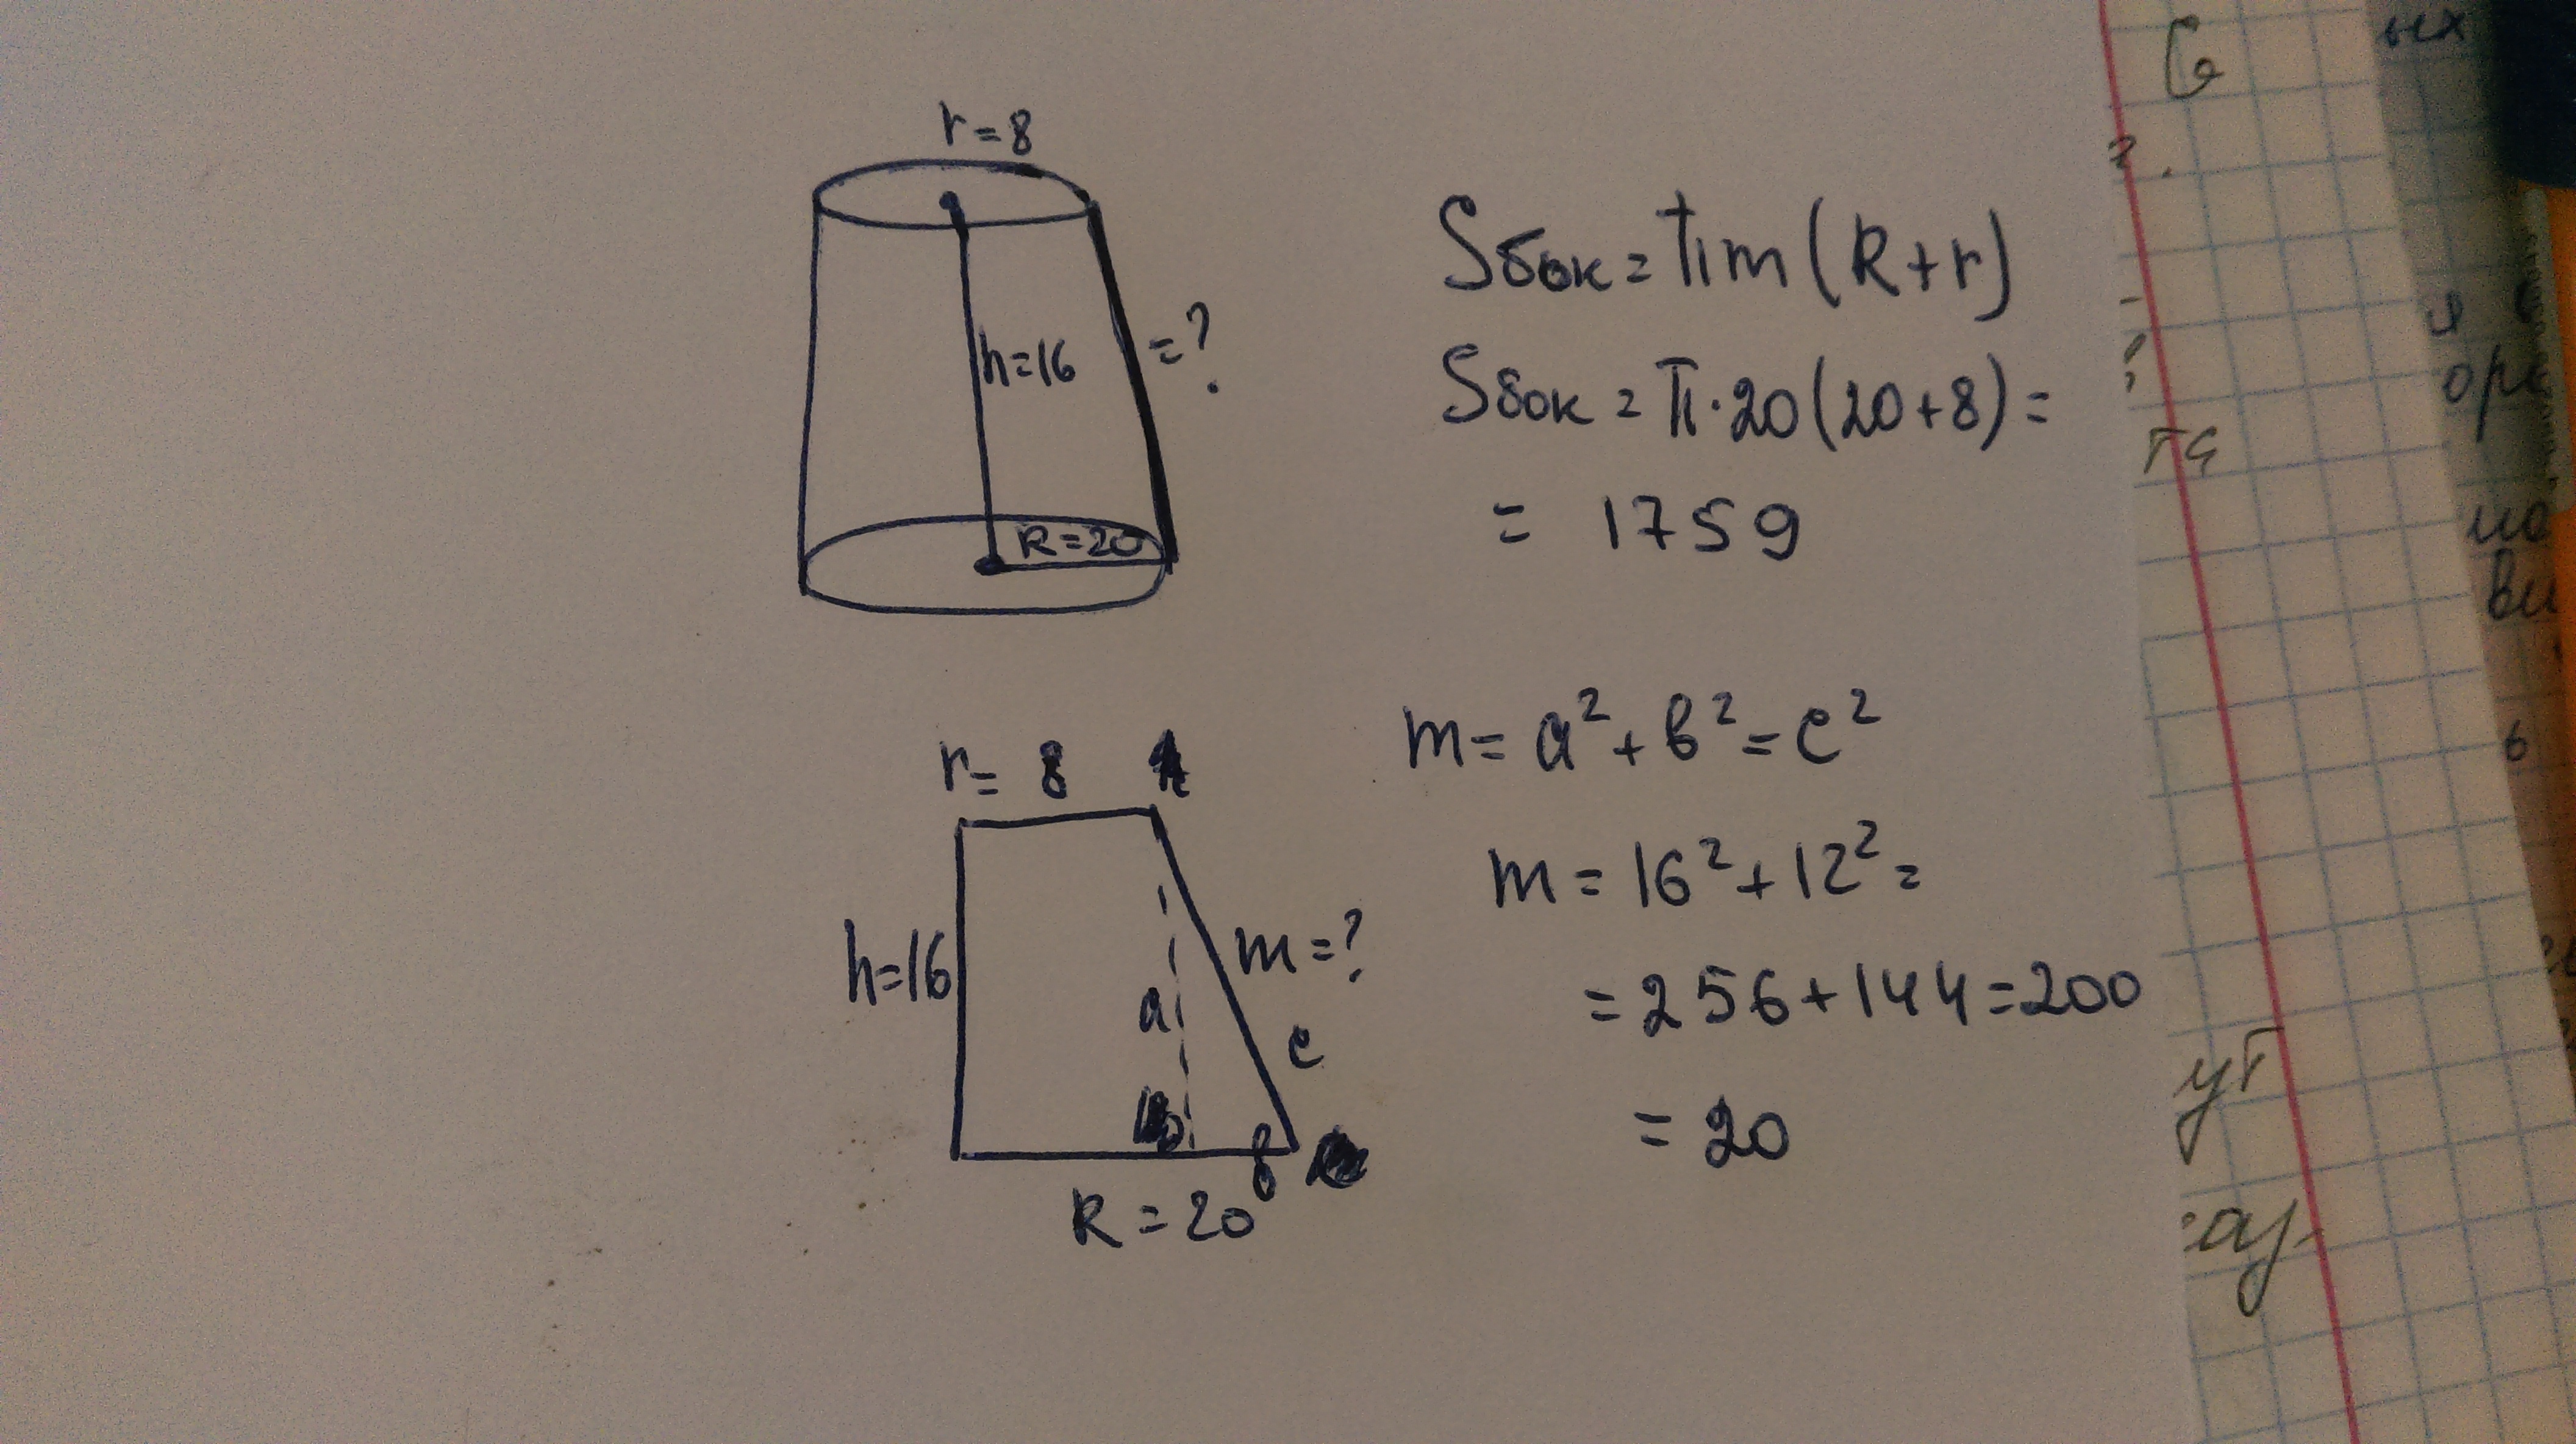 r=8
h=16
=?
R=20
Sбок = πm(R+r)
Sбок = π·20(20+8)=
= 1759
r= 8
h=16
m=?
a
c
в
R=20
m= a²+в²=c²
m= 16²+12²=
=256+144=200
= 20
ых
орс
вы
ут